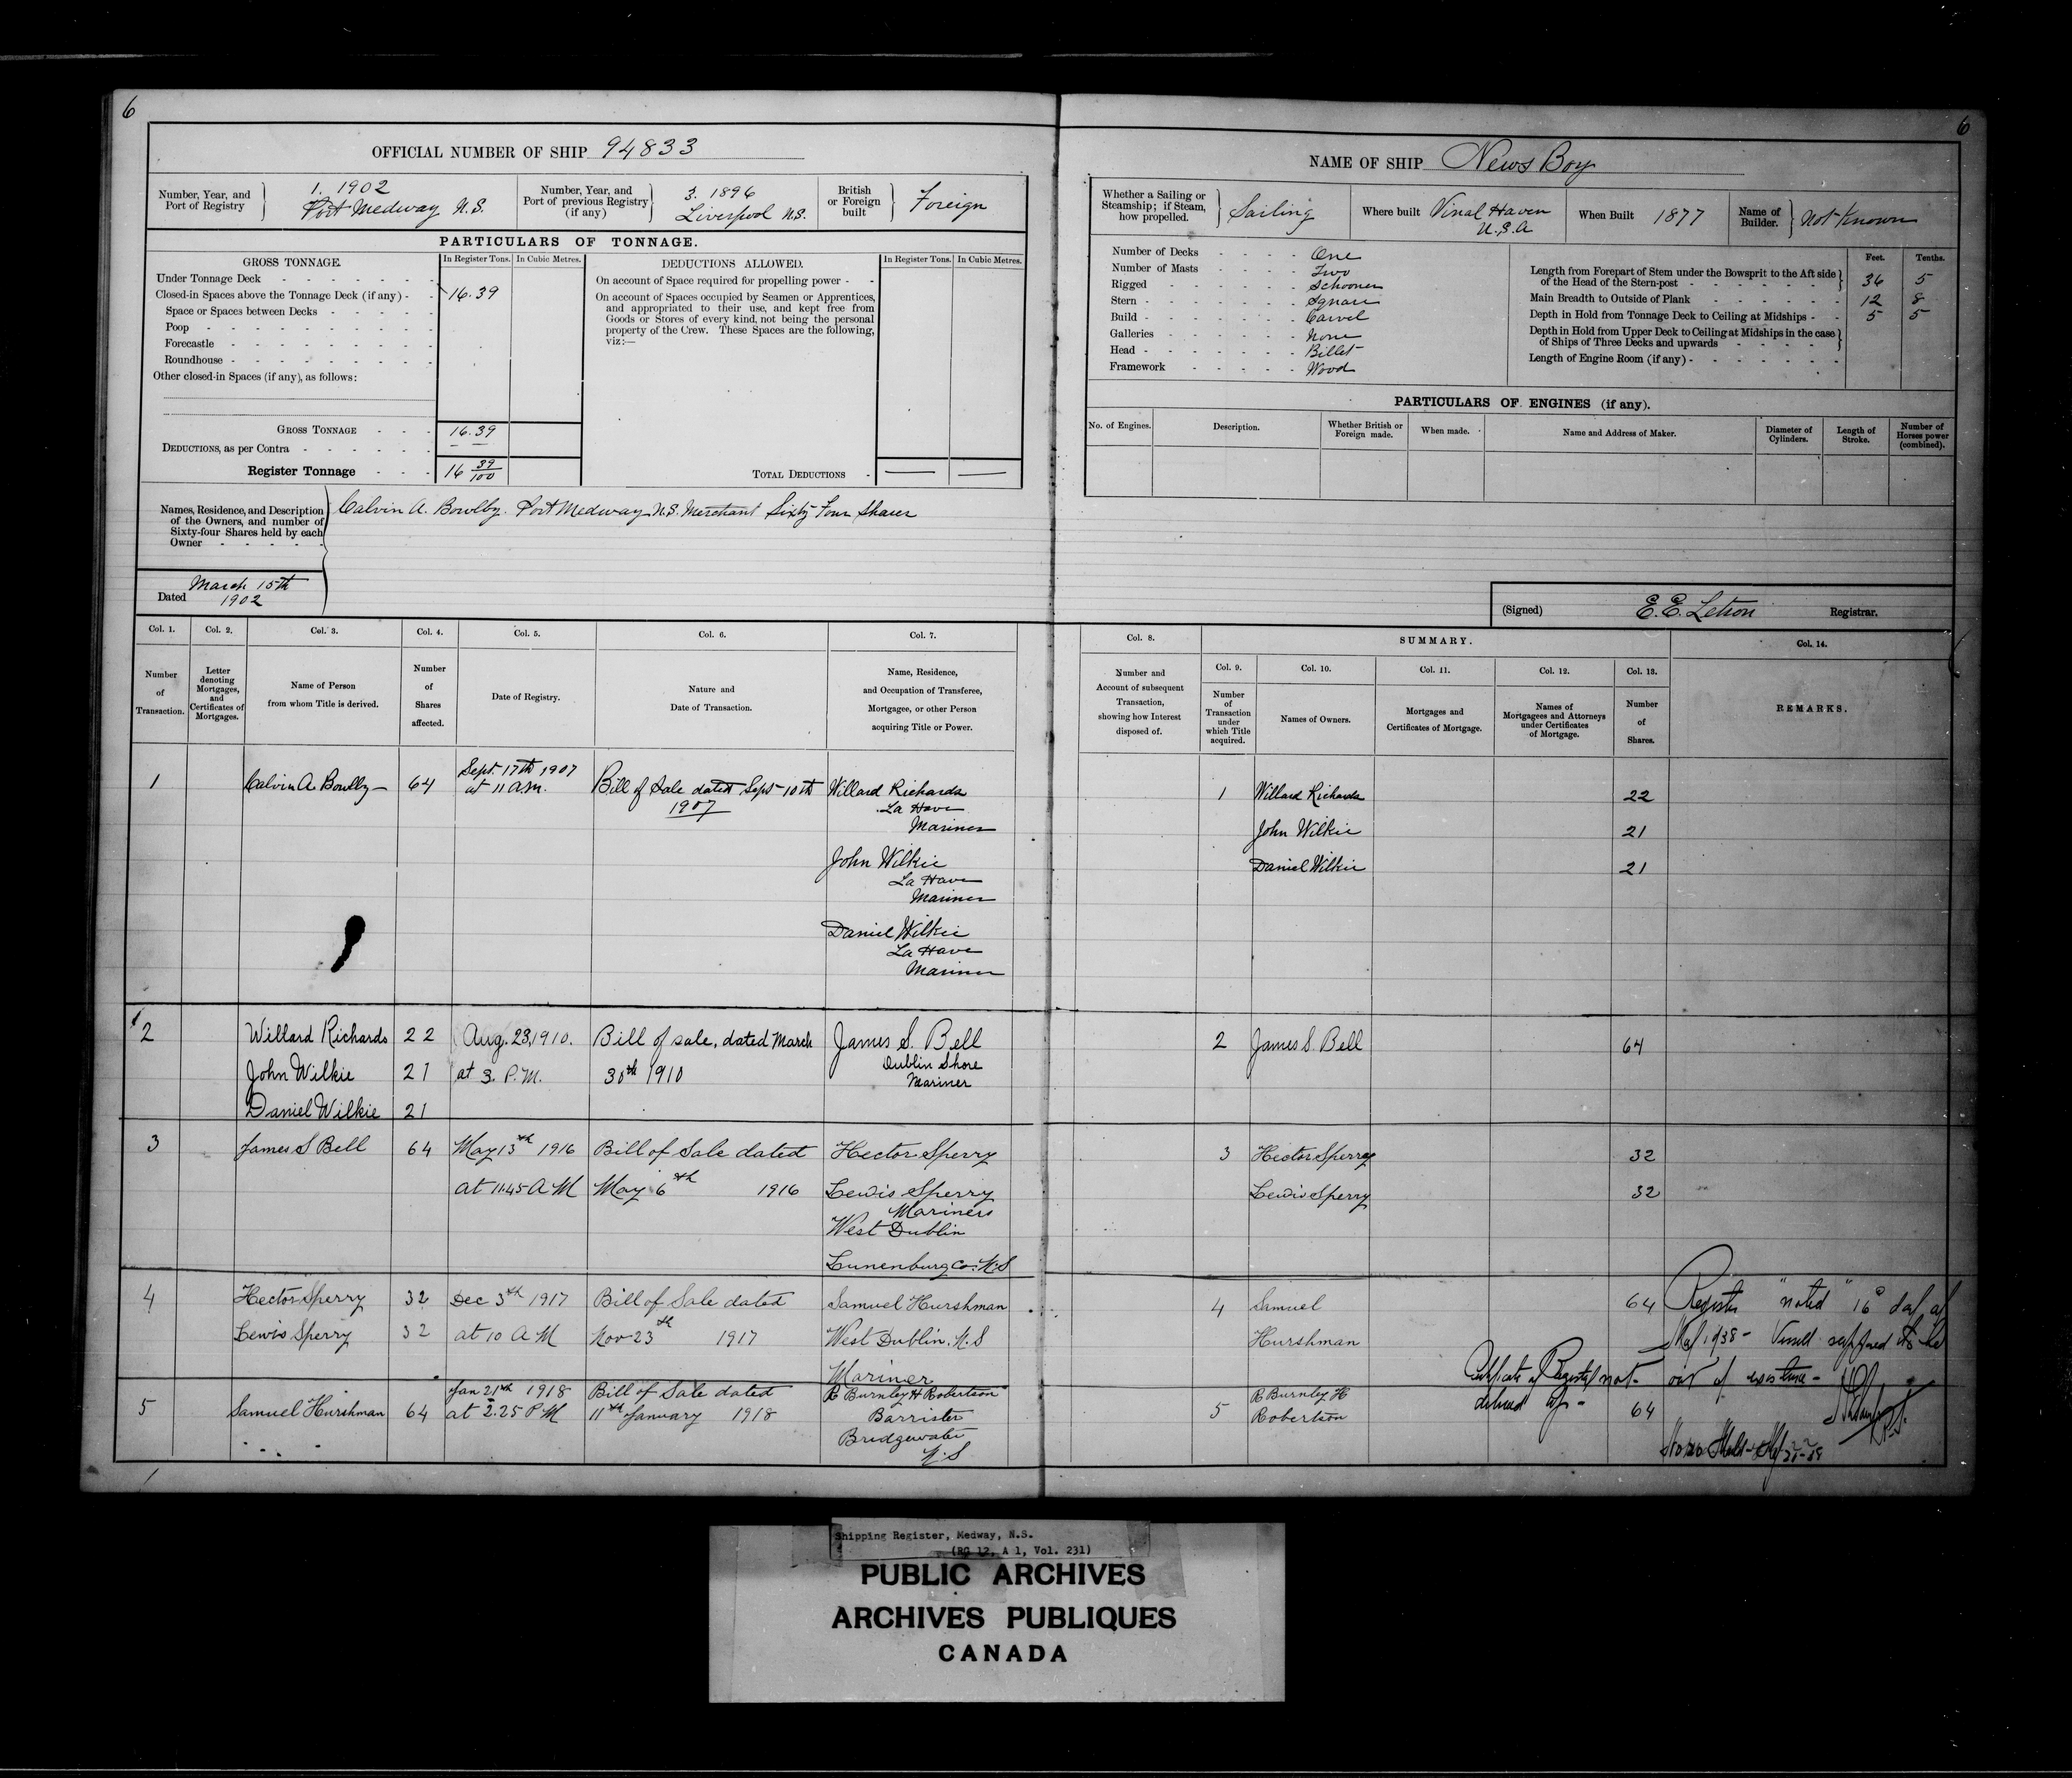 6
6
OFFICIAL NUMBER OF SHIP 94833
Number, Year, and Port of Registry } 1. 1902 Port Medway N.S.
Number, Year, and Port of previous Registry (if any) } 3. 1896 Liverpool N.S.
British or Foreign built } Foreign
PARTICULARS OF TONNAGE.
GROSS TONNAGE. In Register Tons. In Cubic Metres.
Under Tonnage Deck - - - - - -
Closed-in Spaces above the Tonnage Deck (if any) - - 16.39
Space or Spaces between Decks - - - - -
Poop - - - - - - - - -
Forecastle - - - - - - - -
Roundhouse - - - - - - - -
Other closed-in Spaces (if any), as follows:
GROSS TONNAGE - - - 16.39
DEDUCTIONS, as per Contra - - - - - - — —
Register Tonnage - - - 16 39/100
DEDUCTIONS ALLOWED. In Register Tons. In Cubic Metres.
On account of Space required for propelling power - -
On account of Spaces occupied by Seamen or Apprentices,
and appropriated to their use, and kept free from
Goods or Stores of every kind, not being the personal
property of the Crew. These Spaces are the following,
viz:—
TOTAL DEDUCTIONS - — —
Names, Residence, and Description
of the Owners, and number of
Sixty-four Shares held by each
Owner - - - - -
Calvin A. Bowlby. Port Medway N.S. Merchant Sixty Four Shares
Dated March 15th 1902
NAME OF SHIP News Boy
Whether a Sailing or Steamship; if Steam, how propelled. } Sailing
Where built Vinal Haven U.S.A
When Built 1877
Name of Builder. } Not Known
Number of Decks - - - - One
Number of Masts - - - - Two
Rigged - - - - - - Schooner
Stern - - - - - - - Square
Build - - - - - - - Carvel
Galleries - - - - - - None
Head - - - - - - - Billet
Framework - - - - - Wood
Feet. Tenths.
Length from Forepart of Stem under the Bowsprit to the Aft side
of the Head of the Stern-post - - - - - - - } 36 5
Main Breadth to Outside of Plank - - - - - - 12 8
Depth in Hold from Tonnage Deck to Ceiling at Midships - - 5 5
Depth in Hold from Upper Deck to Ceiling at Midships in the case
of Ships of Three Decks and upwards - - - - }
Length of Engine Room (if any) - - - - - - -
PARTICULARS OF ENGINES (if any).
No. of Engines. Description. Whether British or Foreign made. When made. Name and Address of Maker. Diameter of Cylinders. Length of Stroke. Number of Horses power (combined).
(Signed) E. E. Letson Registrar.
Col. 1. Col. 2. Col. 3. Col. 4. Col. 5. Col. 6. Col. 7.
Number of Transaction.
Letter denoting Mortgages, and Certificates of Mortgages.
Name of Person from whom Title is derived.
Number of Shares affected.
Date of Registry.
Nature and Date of Transaction.
Name, Residence, and Occupation of Transferee, Mortgagee, or other Person acquiring Title or Power.
1 Calvin A. Bowlby — 64 Sept. 17th 1907 at 11 a.m. Bill of Sale dated Sept 10th 1907 Willard Richards
La Have
Mariner
John Wilkie
La Have
Mariner
Daniel Wilkie
La Have
Mariner
2 Willard Richards 22 Aug. 23, 1910. Bill of sale, dated March James S. Bell
Dublin Shore
John Wilkie 21 at 3. P.M. 30th 1910 Mariner
Daniel Wilkie 21
3 James S Bell 64 May 13th 1916 Bill of Sale dated Hector Sperry
at 11.45 A M May 6th 1916 Lewis Sperry
Mariners
West Dublin
Lunenburg Co. N.S
4 Hector Sperry 32 Dec 3th 1917 Bill of Sale dated Samuel Hurshman
Lewis Sperry 32 at 10 A M Nov 23th 1917 West Dublin. N.S
Mariner
5 Samuel Hurshman 64 Jan 21th 1918 at 2.25 P M Bill of Sale dated 11th January 1918 R Burnley H Robertson
Barrister
Bridgewater
N.S
Col. 8. SUMMARY. Col. 14.
Col. 9. Col. 10. Col. 11. Col. 12. Col. 13.
Number and Account of subsequent Transaction, showing how Interest disposed of.
Number of Transaction under which Title acquired.
Names of Owners.
Mortgages and Certificates of Mortgage.
Names of Mortgagees and Attorneys under Certificates of Mortgage.
Number of Shares.
REMARKS.
1 Willard Richards 22
John Wilkie 21
Daniel Wilkie 21
2 James S. Bell 64
3 Hector Sperry 32
Lewis Sperry 32
4 Samuel 64
Hurshman
5 R Burnley H Robertson 64
Register "noted" 16
1938 - Vessel supposed to be
out of existence -
Certificate of Registry not
Shipping Register, Medway, N.S.
(RG 12, A 1, Vol. 231)
PUBLIC ARCHIVES
ARCHIVES PUBLIQUES
CANADA